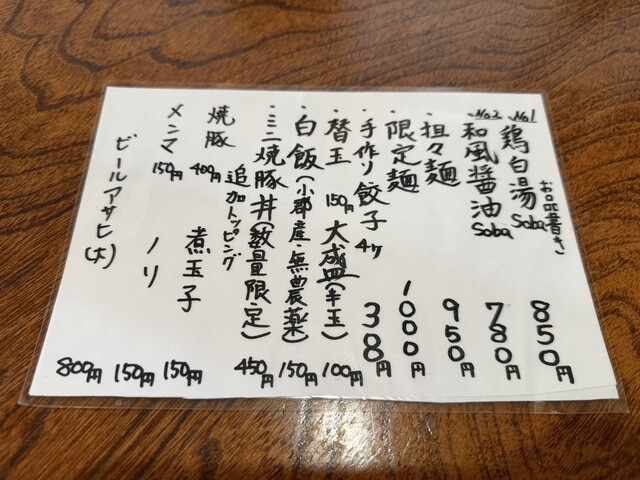 お品書き
No.1 鶏白湯Soba 850円
No.2 和風醤油Soba 780円
・担々麺 950円
・限定麺 1000円
・手作り餃子4ヶ 380円
・替玉 150円 大盛(半玉) 100円
・白飯(小郡産・無農薬) 150円
・ミニ焼豚丼(数量限定) 450円
追加トッピング
焼豚 400円 煮玉子 150円
メンマ 150円 ノリ 150円
ビールアサヒ(大) 800円